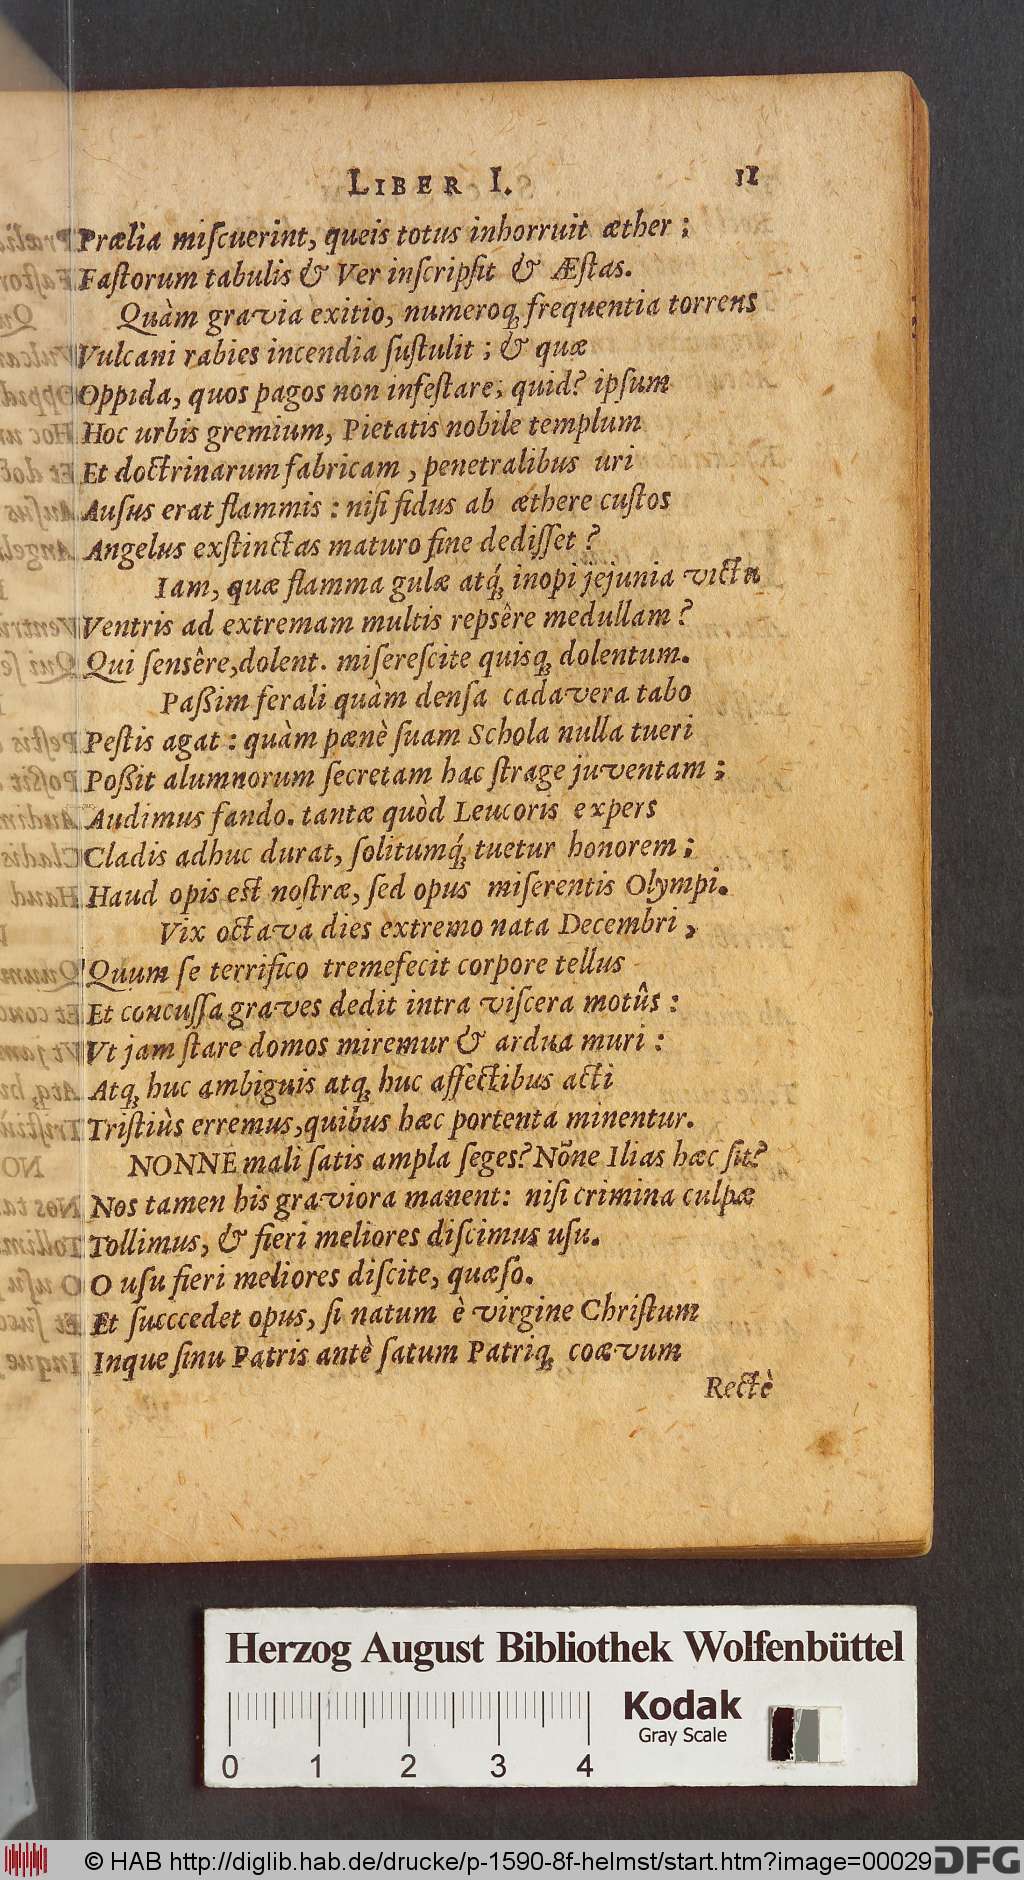 LIBER I. 11
Prælia miſcuerint, queis totus inhorruit æther;
Faſtorum tabulis & Ver inſcripſit & Æſtas.
Quàm gravia exitio, numeroq; frequentia torrens
Vulcani rabies incendia ſuſtulit; & quæ
Oppida, quos pagos non infeſtare; quid? ipſum
Hoc urbis gremium, Pietatis nobile templum
Et doctrinarum fabricam, penetralibus uri
Auſus erat flammis: niſi fidus ab æthere cuſtos
Angelus exſtinctas maturo fine dediſſet?
Iam, quæ flamma gulæ atq́; inopi jejunia victu
Ventris ad extremam multis repsêre medullam?
Qui ſensêre, dolent. miſereſcite quisq; dolentum.
Paßim ferali quàm denſa cadavera tabo
Peſtis agat: quàm pænè ſuam Schola nulla tueri
Poßit alumnorum ſecretam hac ſtrage juventam;
Audimus fando. tantæ quòd Leucoris expers
Cladis adhuc durat, ſolitumq́; tuetur honorem;
Haud opis est noſtræ, ſed opus miſerentis Olympi.
Vix octava dies extremo nata Decembri,
Quum ſe terrifico tremefecit corpore tellus
Et concuſſa graves dedit intra viſcera motûs:
Vt jam ſtare domos miremur & ardua muri:
Atq; huc ambiguis atq; huc affectibus acti
Triſtiùs erremus, quibus hæc portenta minentur.
NONNE mali ſatis ampla ſeges? Nõne Ilias hæc ſit?
Nos tamen his graviora manent: niſi crimina culpæ
Tollimus, & fieri meliores diſcimus uſu.
O uſu fieri meliores diſcite, quæſo.
Et ſucccedet opus, ſi natum è virgine Chriſtum
Inque ſinu Patris antè ſatum Patriq; coævum
Rectè
Herzog August Bibliothek Wolfenbüttel
Kodak
Gray Scale
0 1 2 3 4
© HAB http://diglib.hab.de/drucke/p-1590-8f-helmst/start.htm?image=00029
DFG